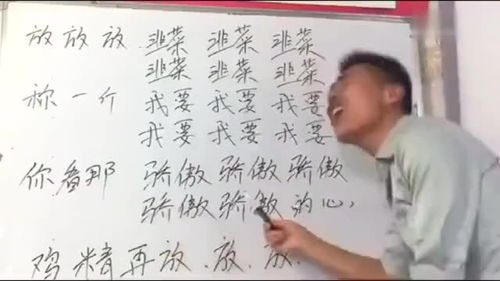 放放放 韭菜 韭菜 韭菜
韭菜 韭菜 韭菜
祢一个 我要 我要 我要
我要 我要 我要
你看那 骄傲 骄傲 骄傲
骄傲 骄傲 的心,
鸡精再放.放.放.